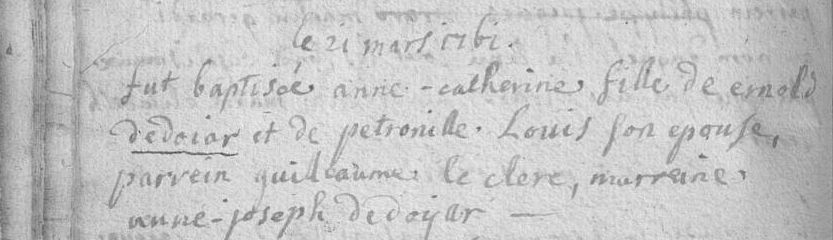 le 21 mars 1761.
fut baptisée anne-catherine fille de ernold
dedoiar et de petronille Louis son epouse,
parrein guilleaume le clerc, marreine
anne-joseph dedoyar —